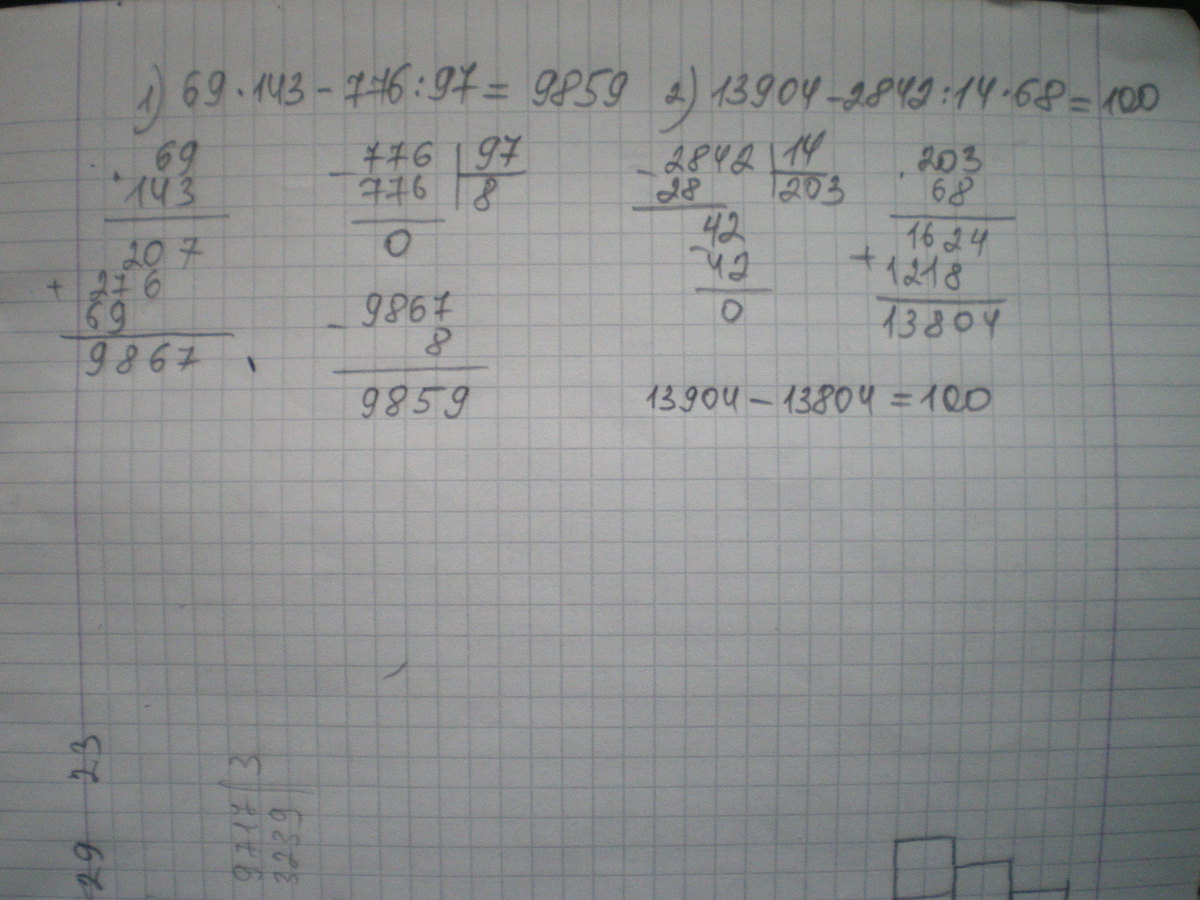 1) 69·143-776:97= 9859
2) 13904-2842:14·68=100
·69
143
207
+ 276
69
9867
-776 | 97
776 | 8
0
-9867
8
9859
-2842 | 14
28 | 203
-42
42
0
·203
68
1624
+1218
13804
13904-13804=100
29 23
9717 | 3
3239